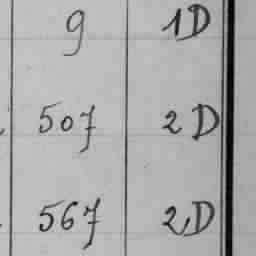 9 1D
507 2D
567 2D